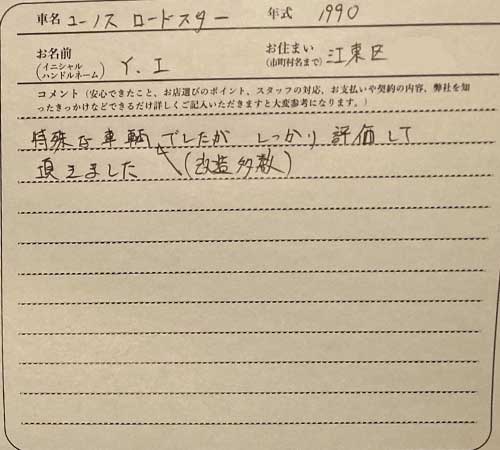 車名 ユーノス ロードスター 年式 1990
お名前 (イニシャル ハンドルネーム) Y. I お住まい (市町村名まで) 江東区
コメント（安心できたこと、お店選びのポイント、スタッフの対応、お支払いや契約の内容、弊社を知
ったきっかけなどできるだけ詳しくご記入いただきますと大変参考になります。）
特殊な車輌でしたが しっかり評価して
頂きました (改造多数)